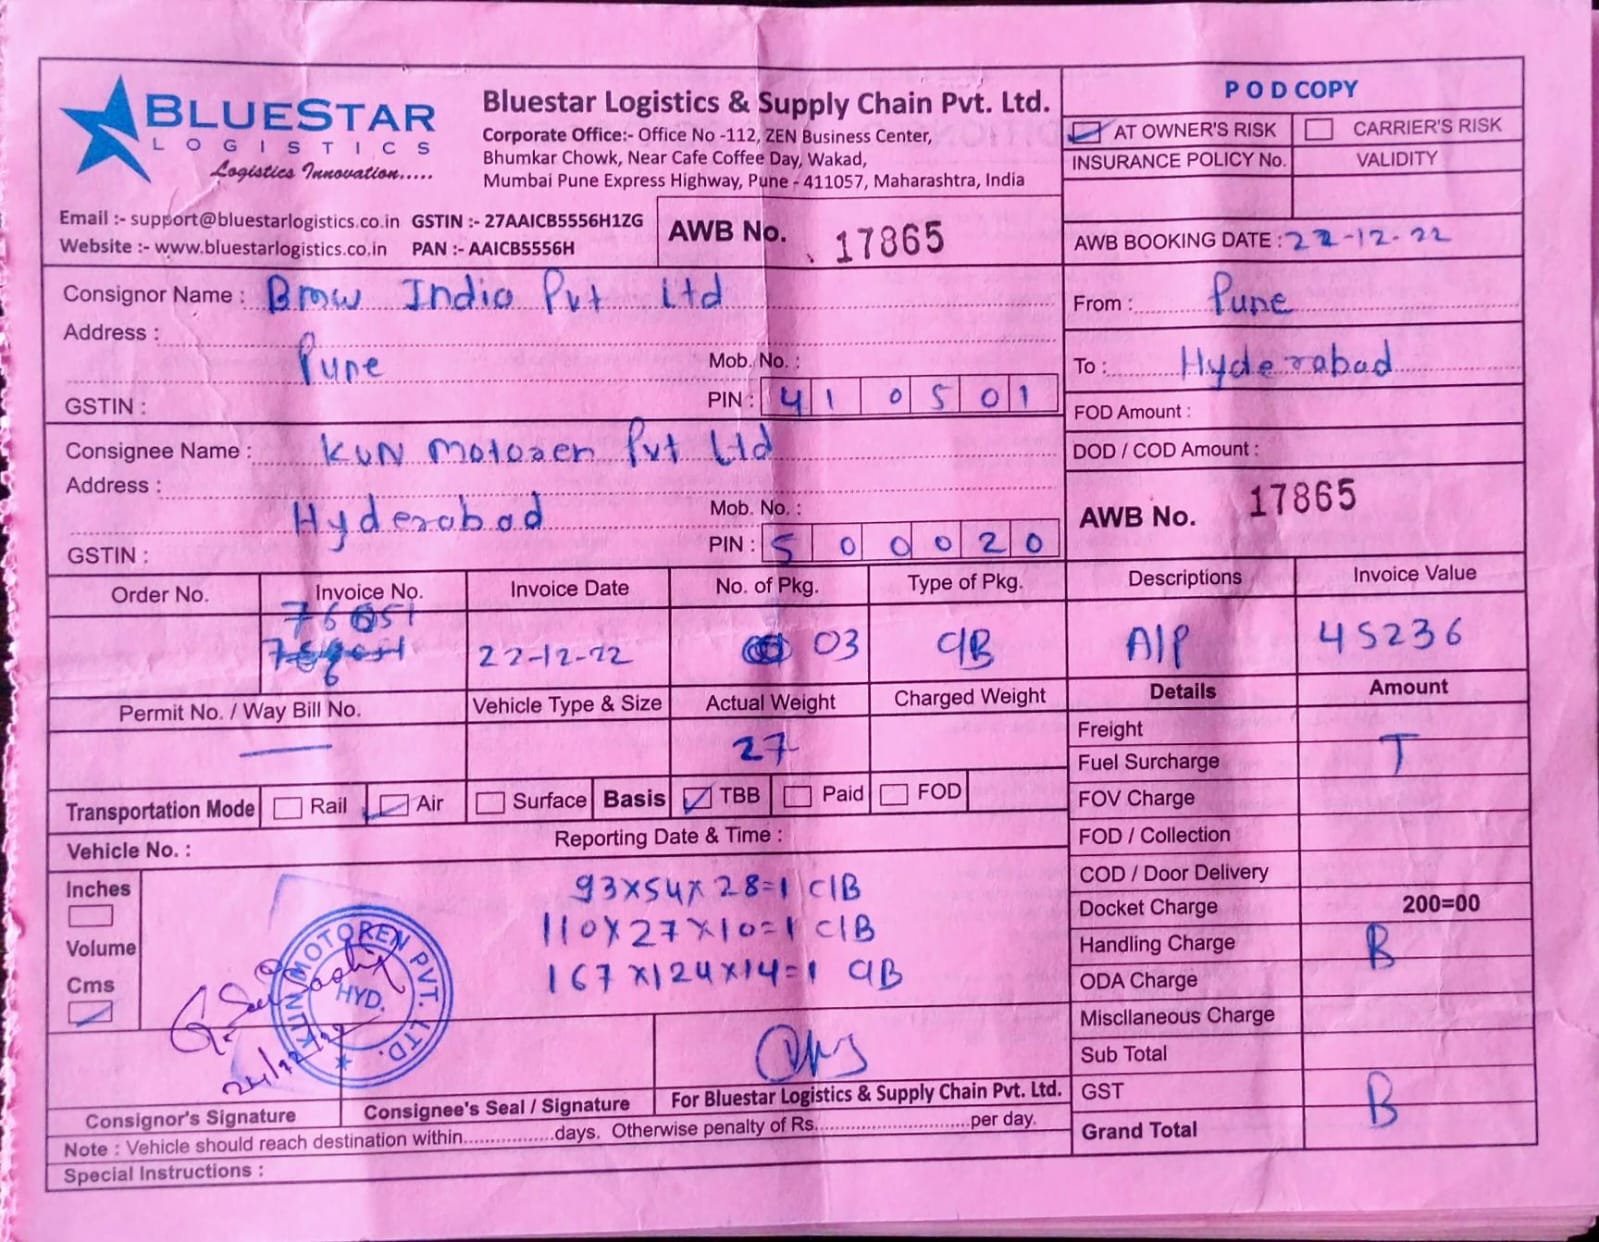 BLUESTAR
LOGISTICS
Logistics Innovation.....
Bluestar Logistics & Supply Chain Pvt. Ltd.
Corporate Office:- Office No -112, ZEN Business Center,
Bhumkar Chowk, Near Cafe Coffee Day, Wakad,
Mumbai Pune Express Highway, Pune - 411057, Maharashtra, India
POD COPY
AT OWNER'S RISK CARRIER'S RISK
INSURANCE POLICY No. VALIDITY
Email :- support@bluestarlogistics.co.in GSTIN :- 27AAICB5556H1ZG
Website :- www.bluestarlogistics.co.in PAN :- AAICB5556H
AWB No. 17865
AWB BOOKING DATE : 22-12-22
Consignor Name : Bmw India Pvt Ltd
Address :
Pune
Mob. No. :
GSTIN :
PIN : 410501
From : Pune
To : Hyderabad
FOD Amount :
Consignee Name : KUN Motoren Pvt Ltd
Address :
Hyderabad
Mob. No. :
GSTIN :
PIN : 500020
DOD / COD Amount :
AWB No. 17865
Order No. Invoice No. Invoice Date No. of Pkg. Type of Pkg. Descriptions Invoice Value
76051
22-12-22 03 C/B A/P 45236
6
Permit No. / Way Bill No. Vehicle Type & Size Actual Weight Charged Weight Details Amount
27
Freight
Fuel Surcharge T
FOV Charge
FOD / Collection
COD / Door Delivery
Docket Charge 200=00
Handling Charge B
ODA Charge
Miscllaneous Charge
Sub Total
GST B
Grand Total
Transportation Mode Rail Air Surface Basis TBB Paid FOD
Vehicle No. : Reporting Date & Time :
Inches
Volume
Cms
93x54x28=1 C/B
110x27x10=1 C/B
167x124x14=1 C/B
KUN MOTOREN PVT. LTD.
HYD.
24/12/22
Consignor's Signature Consignee's Seal / Signature For Bluestar Logistics & Supply Chain Pvt. Ltd.
Note : Vehicle should reach destination within.................days. Otherwise penalty of Rs............................per day.
Special Instructions :